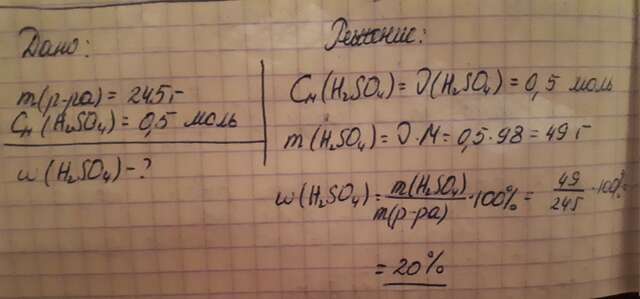 Дано:
m(р-ра) = 245 г
Cм (H₂SO₄) = 0,5 моль
w (H₂SO₄) - ?
Решение:
Cм (H₂SO₄) = ϑ(H₂SO₄) = 0,5 моль
m (H₂SO₄) = ϑ·M = 0,5·98 = 49 г
w(H₂SO₄) = m(H₂SO₄)/m(р-ра) ·100% = 49/245 ·100% =
= 20%